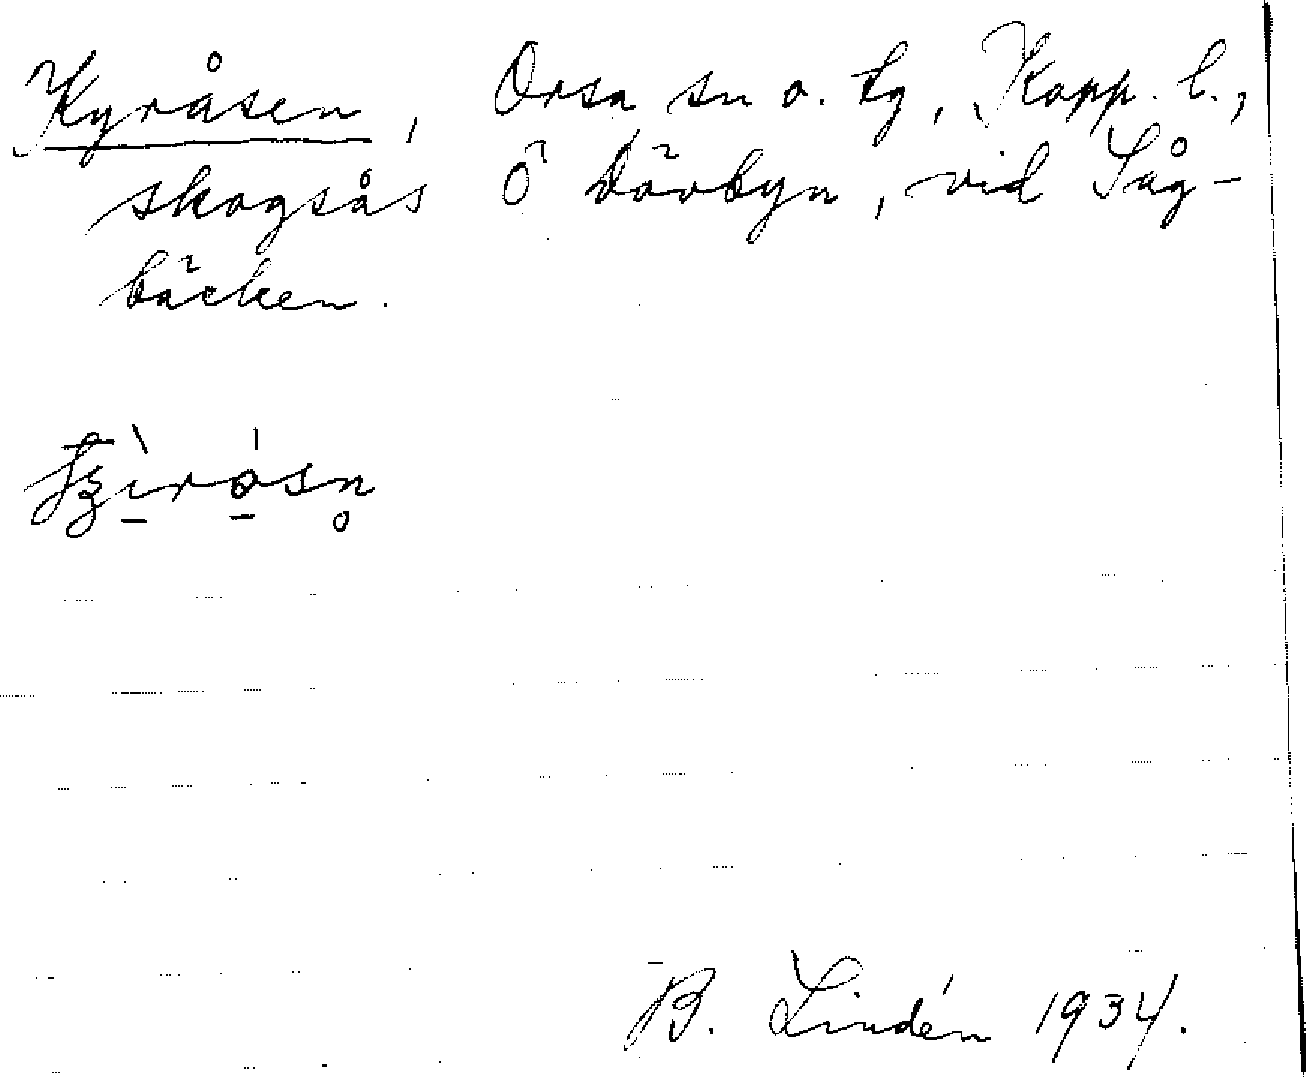 Kyråsen, Orsa sn o. tg, Kopp. l.,
skogsås Ö Dävbyn, vid Såg-
bäcken.
B. Lindén 1934.